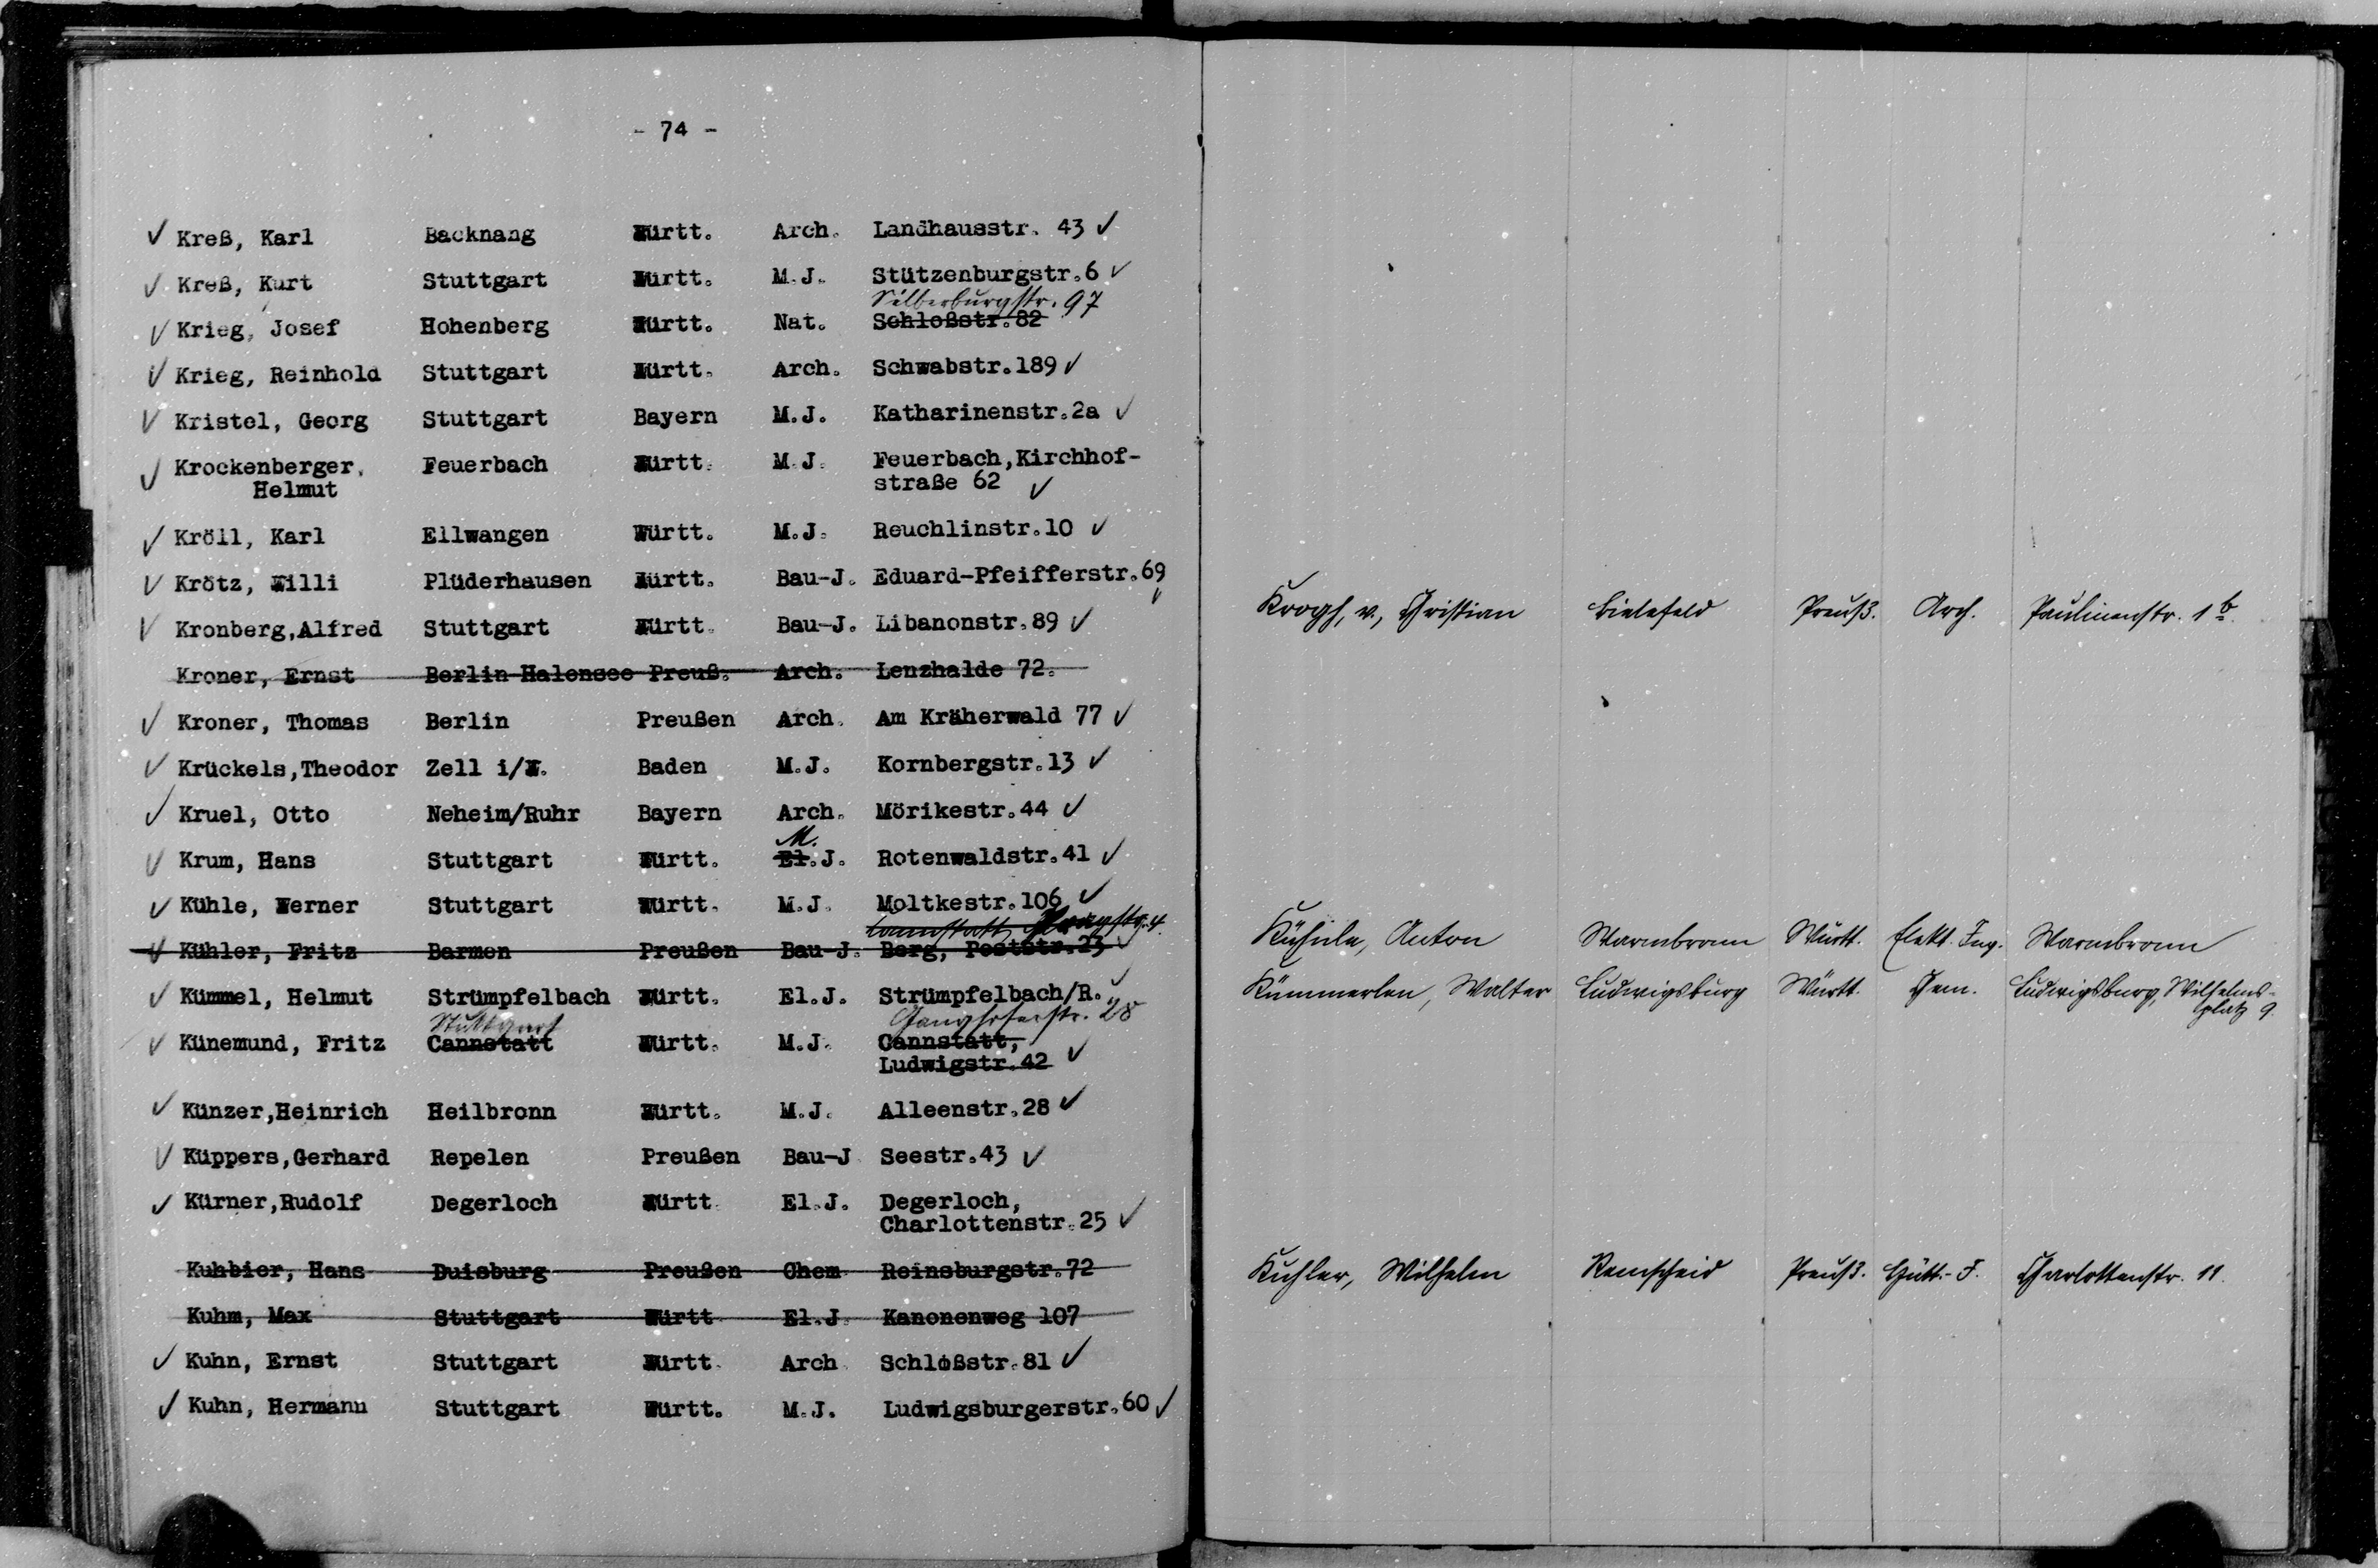 - 74 -
Kreß, Karl Backnang Württ. Arch. Landhausstr. 43
Kreß, Kurt Stuttgart Württ. M.J. Stützenburgstr.6
Silberburgstr. 97
Krieg, Josef Hohenberg Württ. Nat. Schloßstr.82
Krieg, Reinhold Stuttgart Württ. Arch. Schwabstr.189
Kristel, Georg Stuttgart Bayern M.J. Katharinenstr.2a
Krockenberger, Feuerbach Württ. M.J. Feuerbach,Kirchhof-
Helmut straße 62
Kröll, Karl Ellwangen Württ. M.J. Reuchlinstr.10
Krötz, Willi Plüderhausen Württ. Bau-J. Eduard-Pfeifferstr.69
Kronberg,Alfred Stuttgart Württ. Bau-J. Libanonstr.89
Kroner, Ernst Berlin-Halensee Preuß. Arch. Lenzhalde 72.
Kroner, Thomas Berlin Preußen Arch. Am Kräherwald 77
Krückels,Theodor Zell i/W. Baden M.J. Kornbergstr.13
Kruel, Otto Neheim/Ruhr Bayern Arch. Mörikestr.44
M.
Krum, Hans Stuttgart Württ. El.J. Rotenwaldstr.41
Kühle, Werner Stuttgart Württ. M.J. Moltkestr.106
Cannstatt, 4.
Kühler, Fritz Barmen Preußen Bau-J. Berg, Poststr.23
Kümmel, Helmut Strümpfelbach Württ. El.J. Strümpfelbach/R.
Stuttgart Ganghoferstr. 28
Künemund, Fritz Cannstatt Württ. M.J. Cannstatt,
Ludwigstr.42
Künzer,Heinrich Heilbronn Württ. M.J. Alleenstr.28
Küppers,Gerhard Repelen Preußen Bau-J Seestr.43
Kürner,Rudolf Degerloch Württ El.J. Degerloch,
Charlottenstr.25
Kuhbier, Hans Duisburg Preußen Chem Reinsburgstr.72
Kuhm, Max Stuttgart Württ El.J Kanonenweg 107
Kuhn, Ernst Stuttgart Württ. Arch Schloßstr.81
Kuhn, Hermann Stuttgart Württ. M.J. Ludwigsburgerstr.60
Krogh, v., Christian Bielefeld Preuß. Arch. Paulinenstr. 1b
Kühnle, Anton Warmbronn Württ. Elekt. Ing. Warmbronn
Kümmerlen, Walter Ludwigsburg Württ. Chem. Ludwigsburg, Wilhelms-
platz 9.
Kuhler, Wilhelm Remscheid Preuß. Hütt.-J. Charlottenstr. 11.